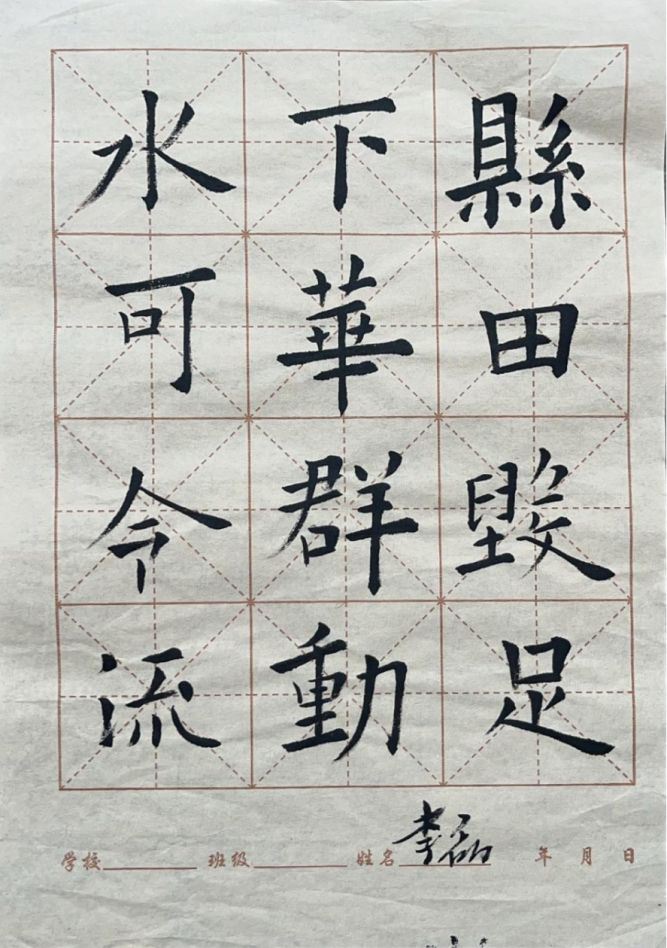 縣田毀足
下華群動
水可令流
学校 班级 姓名 李磊 年 月 日